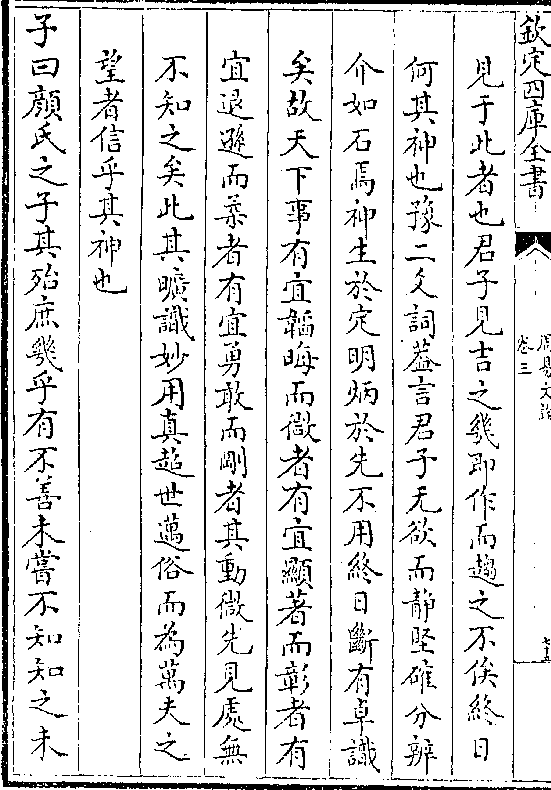 欽定四庫全書
卷三
見于此者也君子見吉之幾即作而趨之不俟終日
何其神也豫二爻詞葢言君子无欲而靜堅確分辨
介如石焉神生於定明炳於先不用終日斷有卓識
矣故天下事有宜韜晦而微者有宜顯著而彰者有
宜退遜而柔者有宜勇敢而剛者其動微先見處無
不知之矣此其曠識妙用真超世邁俗而為萬夫之
望者信乎其神也
子曰顔氏之子其殆庶幾乎有不善未嘗不知知之未